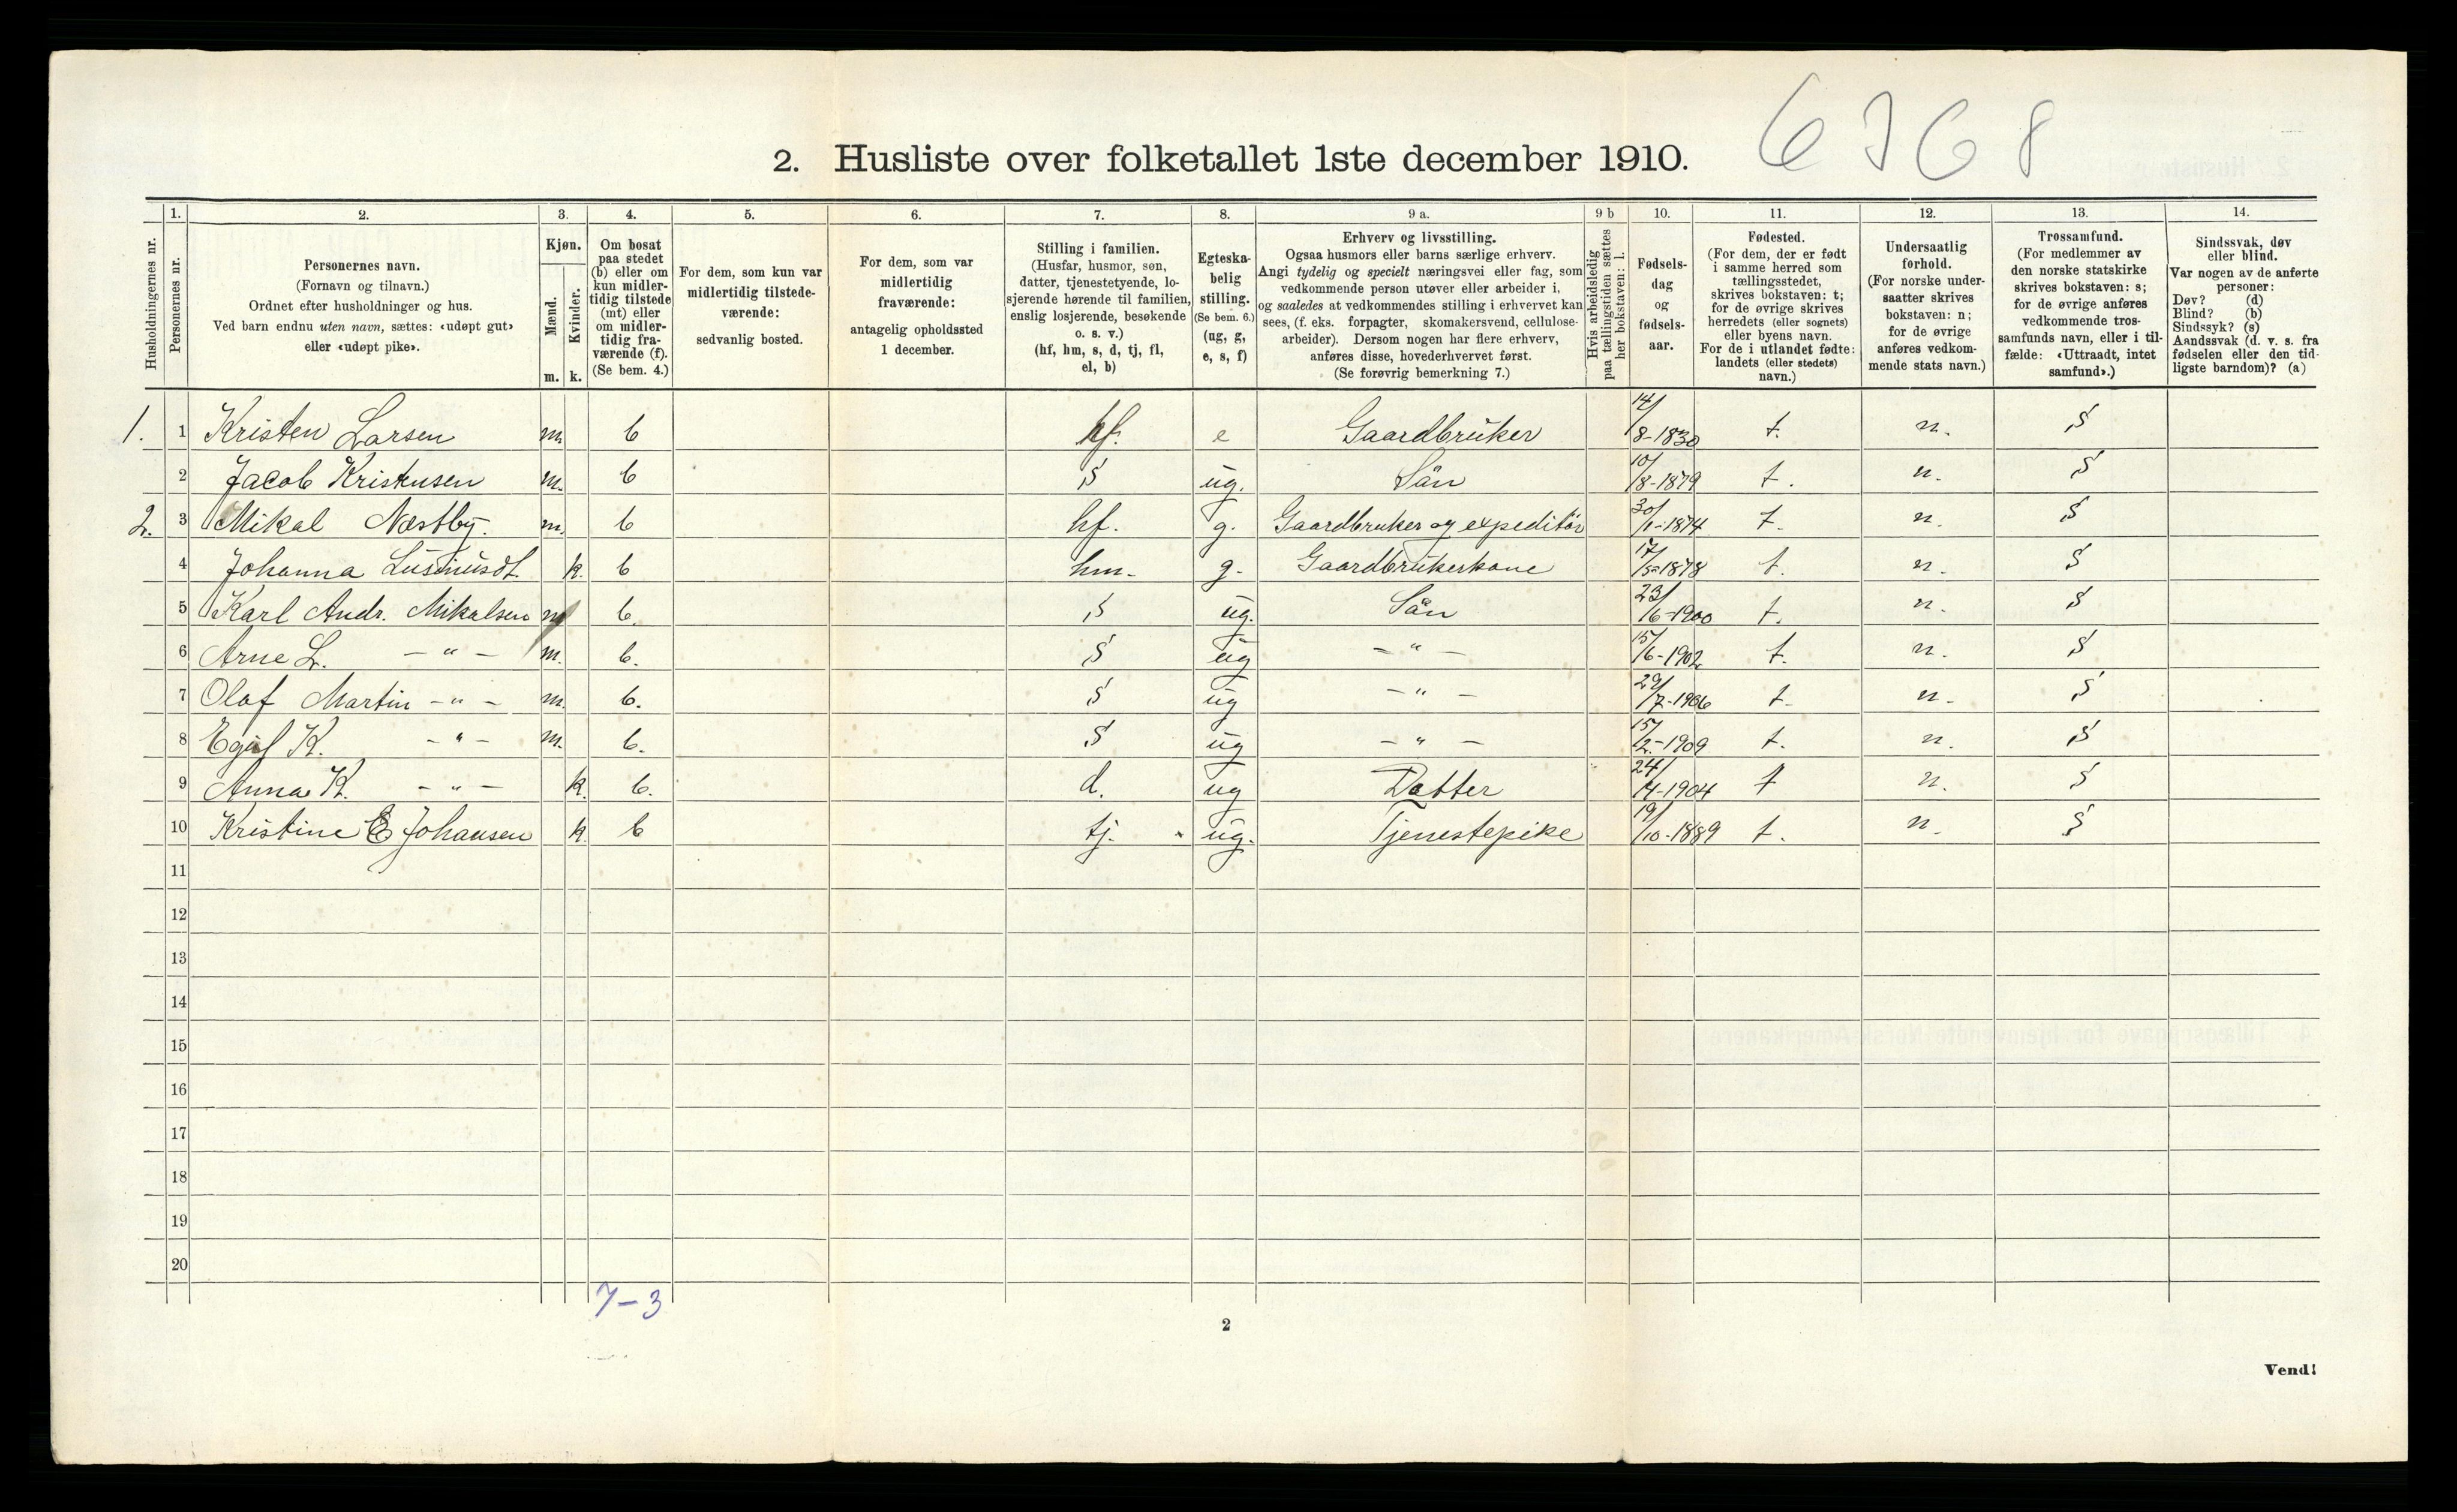 6368
2. Husliste over folketallet 1ste december 1910.
Husholdningernes nr.
1. Personernes nr.
2. Personernes navn. (Fornavn og tilnavn.) Ordnet efter husholdninger og hus. Ved barn endnu uten navn, sættes: «udøpt gut» eller «udøpt pike».
3. Kjøn. Mænd. m. Kvinder. k.
4. Om bosat paa stedet (b) eller om kun midlertidig tilstede (mt) eller om midlertidig fraværende (f). (Se bem. 4.)
5. For dem, som kun var midlertidig tilstedeværende: sedvanlig bosted.
6. For dem, som var midlertidig fraværende: antagelig opholdssted 1 december.
7. Stilling i familien. (Husfar, husmor, søn, datter, tjenestetyende, losjerende hørende til familien, enslig losjerende, besøkende o. s. v.) (hf, hm, s, d, tj, fl, el, b)
8. Egteskabelig stilling. (Se bem. 6.) (ug, g, e, s, f)
9 a. Erhverv og livsstilling. Ogsaa husmors eller barns særlige erhverv. Angi tydelig og specielt næringsvei eller fag, som vedkommende person utøver eller arbeider i, og saaledes at vedkommendes stilling i erhvervet kan sees, (f. eks. forpagter, skomakersvend, cellulosearbeider). Dersom nogen har flere erhverv, anføres disse, hovederhvervet først. (Se forøvrig bemerkning 7.)
9 b Hvis arbeidsledig paa tællingstiden sættes her bokstaven: l.
10. Fødselsdag og fødselsaar.
11. Fødested. (For dem, der er født i samme herred som tællingsstedet, skrives bokstaven: t; for de øvrige skrives herredets (eller sognets) eller byens navn. For de i utlandet fødte: landets (eller stedets) navn.)
12. Undersaatlig forhold. (For norske undersaatter skrives bokstaven: n; for de øvrige anføres vedkommende stats navn.)
13. Trossamfund. (For medlemmer av den norske statskirke skrives bokstaven: s; for de øvrige anføres vedkommende trossamfunds navn, eller i tilfælde: «Uttraadt, intet samfund».)
14. Sindssvak, døv eller blind. Var nogen av de anførte personer: Døv? (d) Blind? (b) Sindssyk? (s) Aandssvak (d. v. s. fra fødselen eller den tidligste barndom)? (a)
1. 1 Kristen Larsen m. b hf. e Gaardbruker 14/8-1830 t. n. s
2 Jacob Kristensen m. b s ug. Sån 10/8-1879 t. n. s
2. 3 Mikal Næstby. m. b hf. g. Gaardbruker og expeditör 30/1-1874 t. n. s
4 Johanna k. b hm. g. Gaardbrukerkone 1878 t. n. s
5 Karl Andr. Mikalsen m b. s ug. Sån 23/6-1900 t. n. s
6 Arne L. - " - m. b. s ug - " - 15/6-1902 t. n. s
7 Olaf Martin - " - m. b. s ug - " - 29/7-1906 t. n. s
8 Egil K. - " - m. b. s ug - " - 15/2-1909 t. n. s
9 Anna K. - " - k. b. d. ug Datter 24/4-1904 t n. s
10 Kristine E Johansen k. b tj. ug. Tjenestepike 19/10-1889 t. n. s
11
12
13
14
15
16
17
18
19
20
7-3
2
Vend!